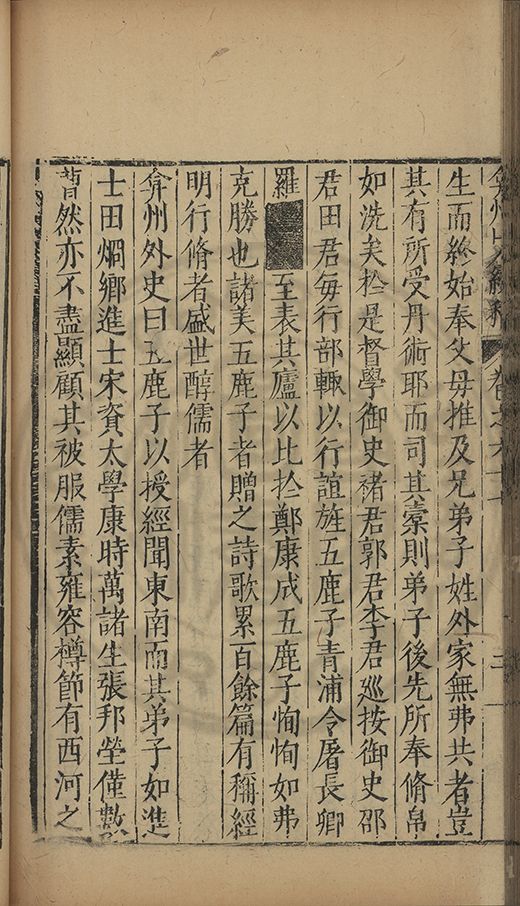 弇州山人續稿 卷之六十 二
生而終始奉父母推及兄弟子姓外家無弗共者豈
其有所受丹術耶而司其橐則弟子後先所奉脩帛
如洗矣扵是督學御史褚君郭君李君廵按御史邵
君田君每行部輙以行誼旌五鹿子青浦令屠長卿
羅 至表其廬以比扵鄭康成五鹿子恂恂如弗
克勝也諸美五鹿子者贈之詩歌累百餘篇有稱經
明行脩者盛世醇儒者
弇州外史曰五鹿子以授經聞東南而其弟子如進
士田烱鄉進士宋資太學康時萬諸生張邦瑩僅數
曹然亦不盡顯顧其被服儒素雍容樽節有西河之